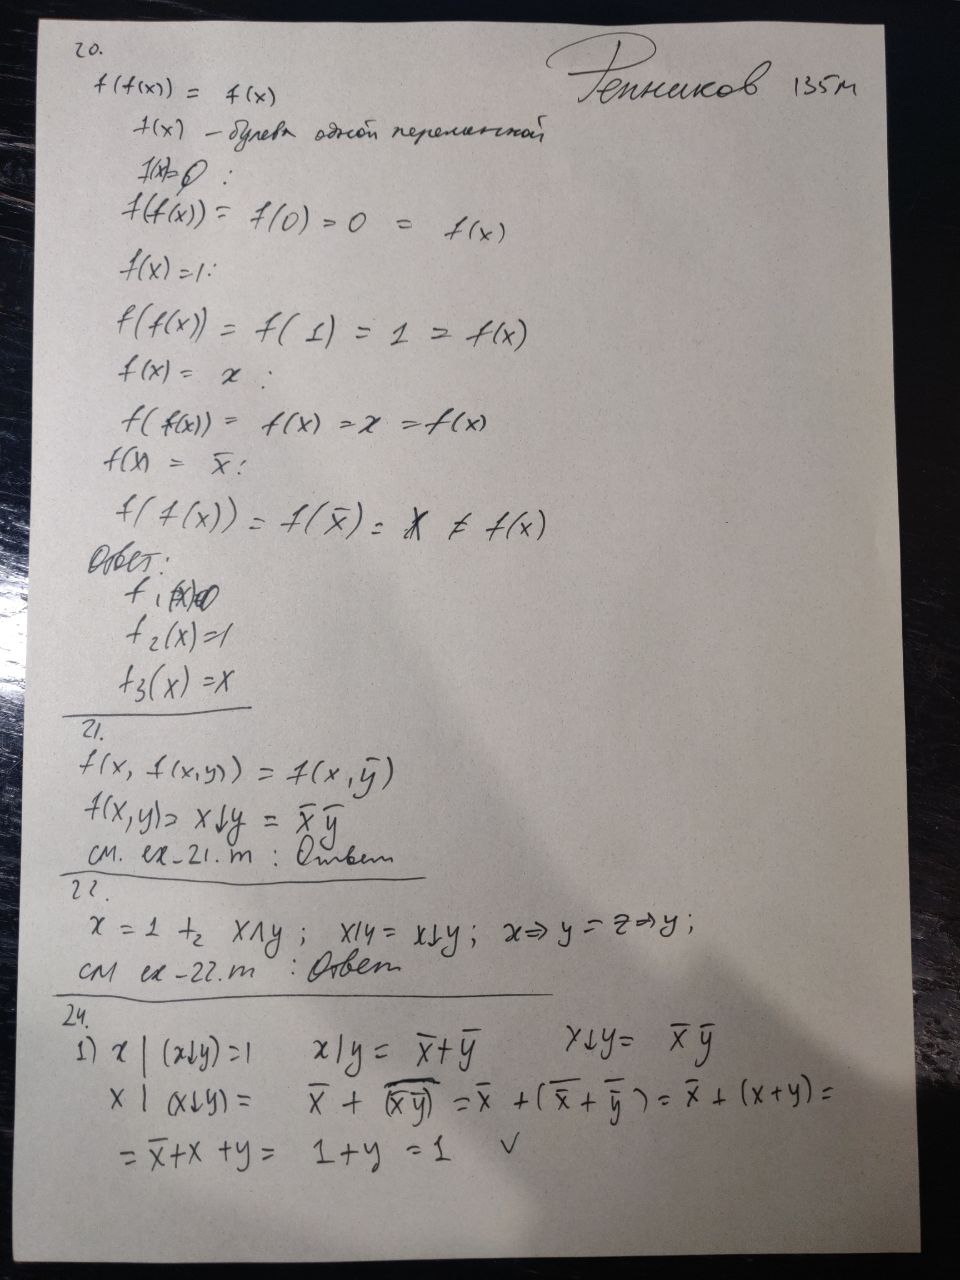 20.
Репников 135М
f(f(x)) = f(x)
f(x) – булева одной переменной
f(x)=0 :
f(f(x)) = f(0) = 0 = f(x)
f(x) = 1:
f(f(x)) = f(1) = 1 = f(x)
f(x) = x :
f(f(x)) = f(x) = x = f(x)
f(x) = x̄ :
f(f(x)) = f(x̄) = x ≠ f(x)
Ответ:
f₁(x)=0
f₂(x)=1
f₃(x)=x
21.
f(x, f(x,y)) = f(x, ȳ)
f(x,y) = x↓y = x̄ ȳ
см. ex_21.m : Ответ
22.
x = 1 +₂ x∧y ; x|y = x↓y ; x⇒y = z⇒y ;
см ex_22.m : Ответ
24.
1) x | (x↓y) = 1 x|y = x̄ + ȳ x↓y = x̄ ȳ
x | (x↓y) = x̄ + \overline{(x̄ ȳ)} = x̄ + (\overline{x̄} + \overline{ȳ}) = x̄ + (x+y) =
= x̄ + x + y = 1 + y = 1 ✓